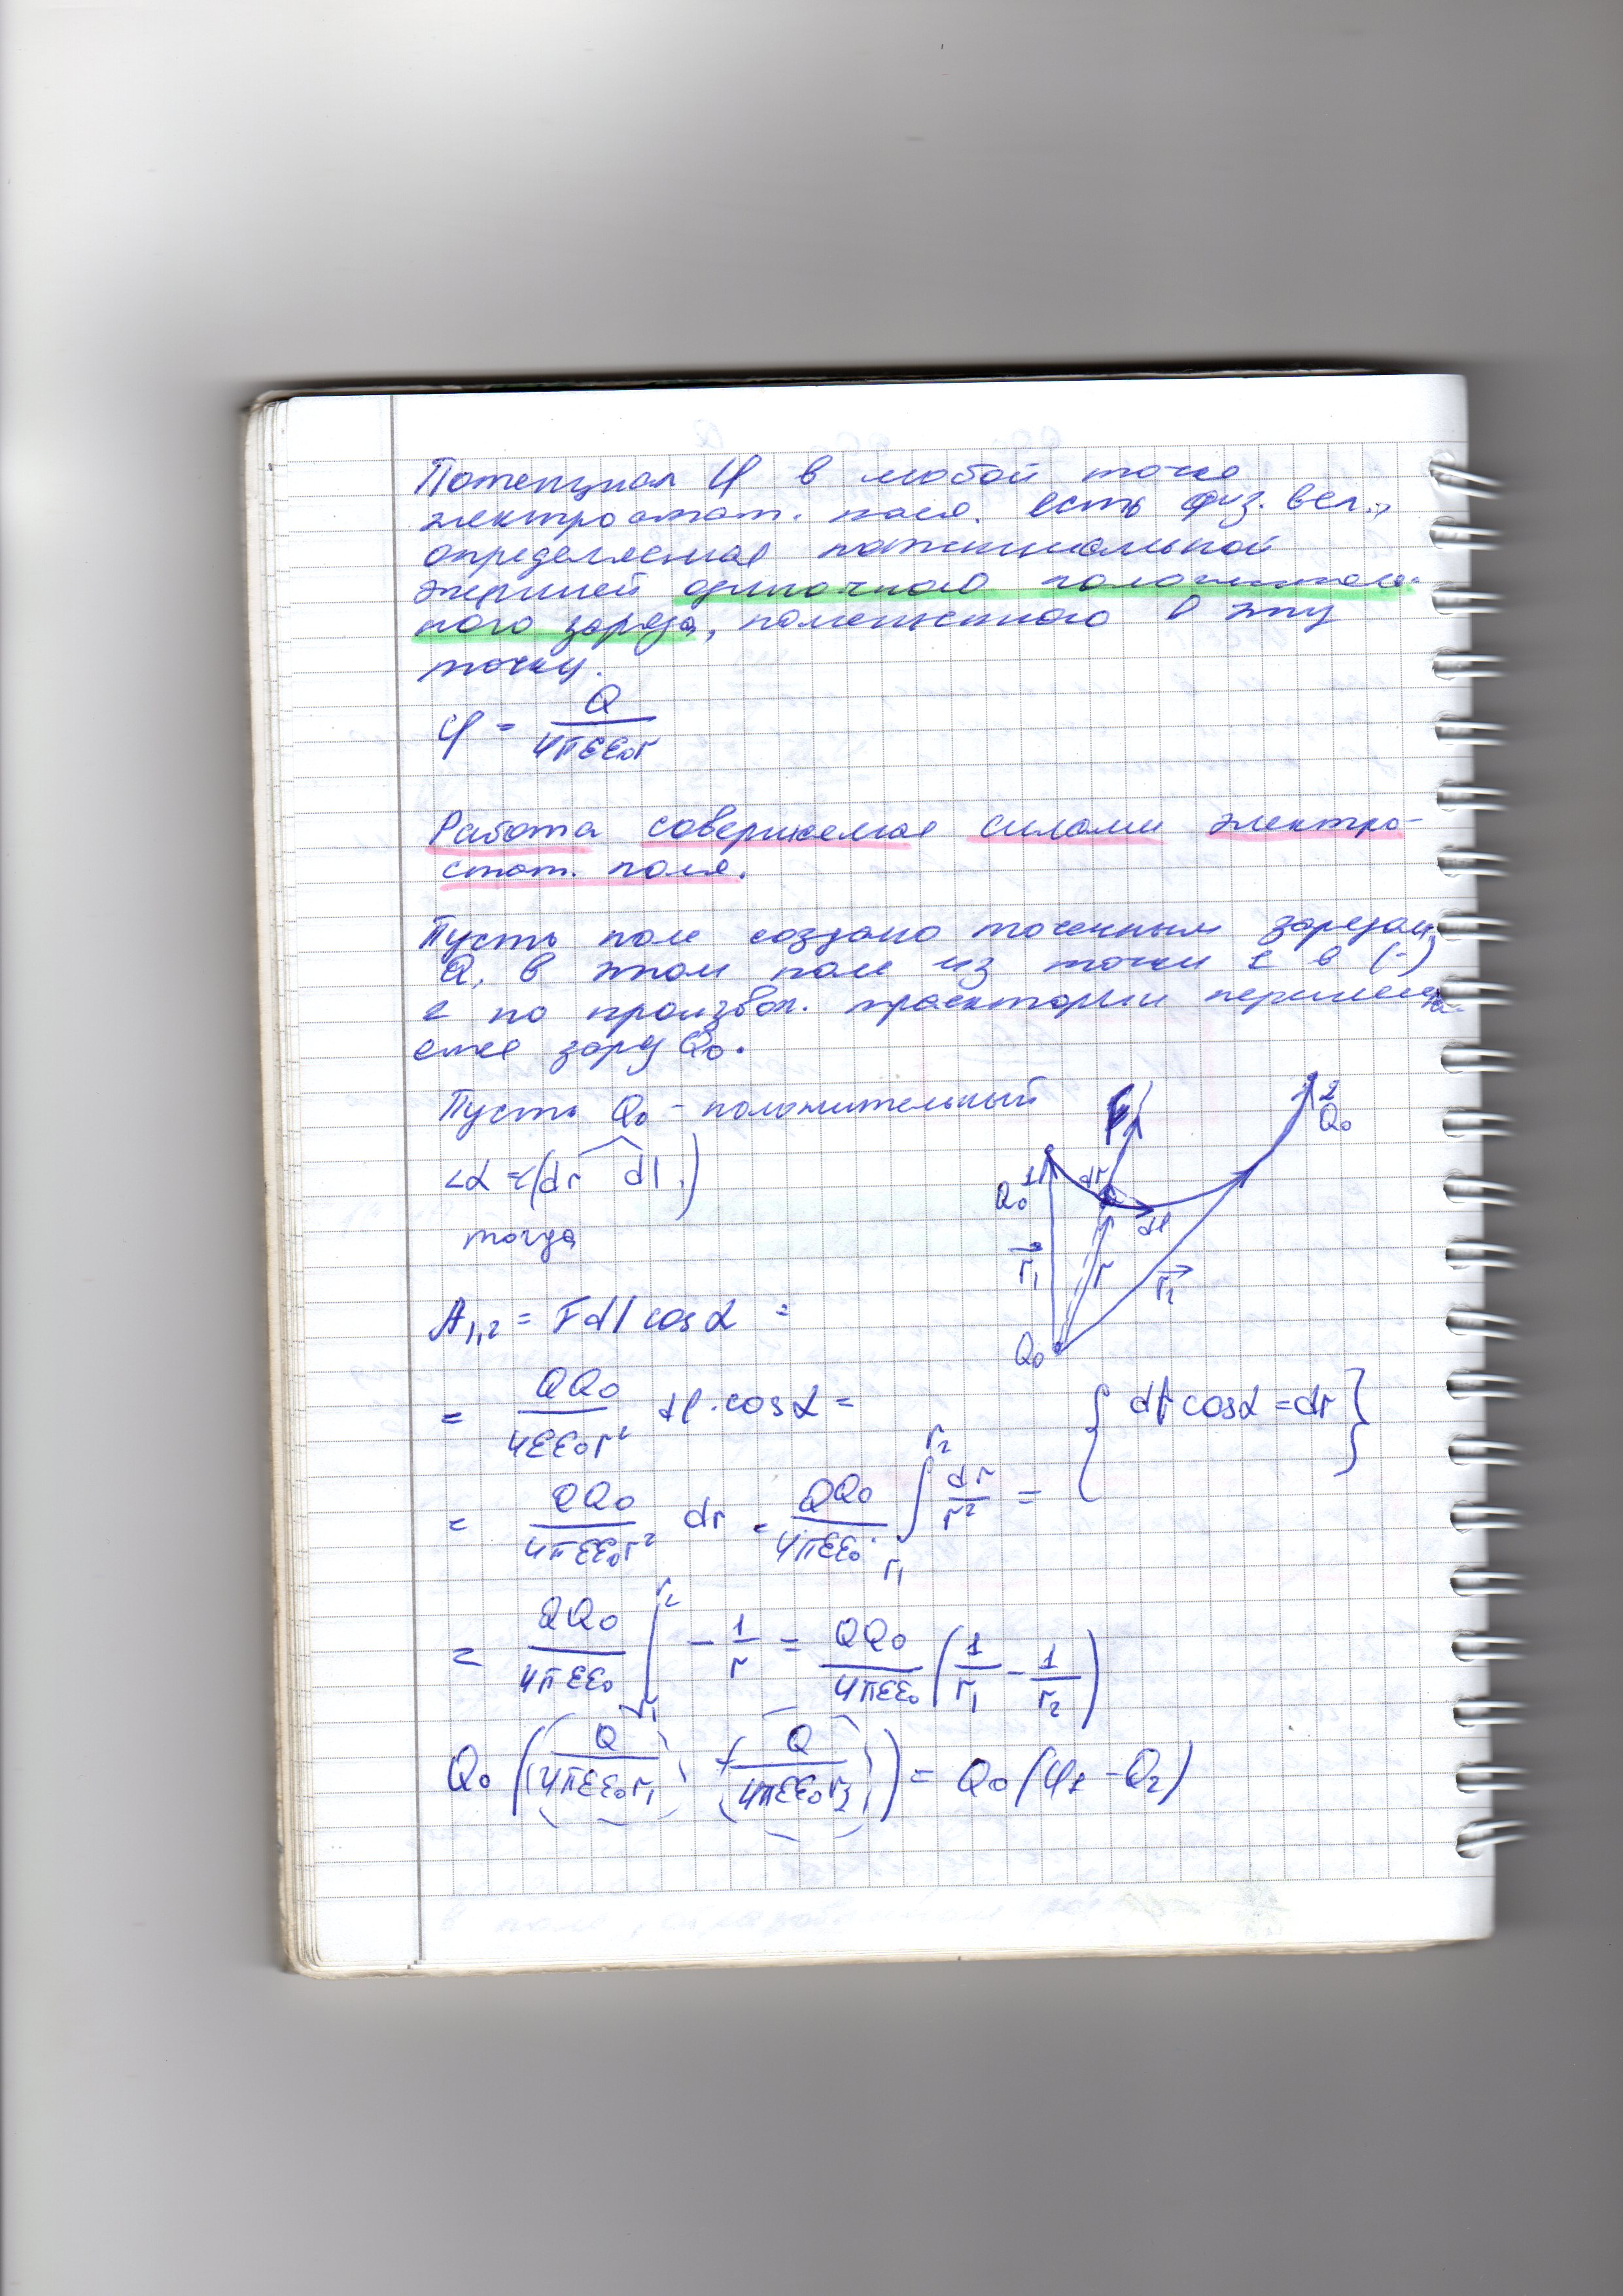 Потенциал φ в любой точке
электростат. поля. есть физ. вел.,
определяемая потенциальной
энергией единичного положитель-
ного заряда, помещенного в эту
точку.
φ = Q / 4πεε₀r
Работа совершаемая силами электро-
стат. поля.
Пусть поле создано точечным зарядом
Q, в этом поле из точки 1 в (·)
2 по произвол. траектории перемеща-
ется заряд Q₀.
Пусть Q₀ - положительный
<α = <(dr dl.)
тогда
1 Q₀ dr F dl 2 Q₀
r₁ r r₂
Q₀
A₁,₂ = Fdl cosα =
= QQ₀ / 4εε₀r² dl · cosα = { dl cosα = dr }
= QQ₀ / 4πεε₀r² dr = QQ₀ / 4πεε₀ · ∫ r₁ r₂ dr / r² =
= QQ₀ / 4πεε₀ | r₁ r₂ - 1/r = QQ₀ / 4πεε₀ (1/r₁ - 1/r₂)
Q₀ ((Q / 4πεε₀r₁) + (Q / 4πεε₀r₂)) = Q₀ (φ₁ - Q₂)